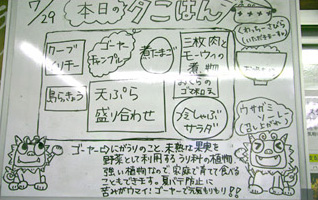 7/29
本日の夕ごはん
くわっちーさびら
(いただきまーす)
クーブ
イリチー
ゴーヤー
チャンプルー
煮たまご
三枚肉と
モーウィの
煮物
島らっきょう
天ぷら
盛り合わせ
おくらの
ゴマ和え
冷しゃぶ
サラダ
ウサガミ
ソーレー
(召し上がれ)
ゴーヤー⇨にがうりのこと、未熟な果実を
野菜として利用するうり科の植物
強い植物なので家庭で育てて食べる
こともできます。夏バテ防止に
苦みがウマイ!ゴーヤーで元気もりもり!!